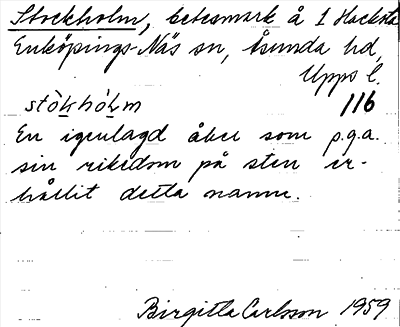 Stockholm, betesmark å 1 Hacksta
Enköpings-Näs sn, Åsunda hd,
Upps l.
stòkhó̀lm 116
En igenlagd åker som p.g.a.
sin rikedom på sten er-
hållit detta namn.
Birgitta Carlsson 1959